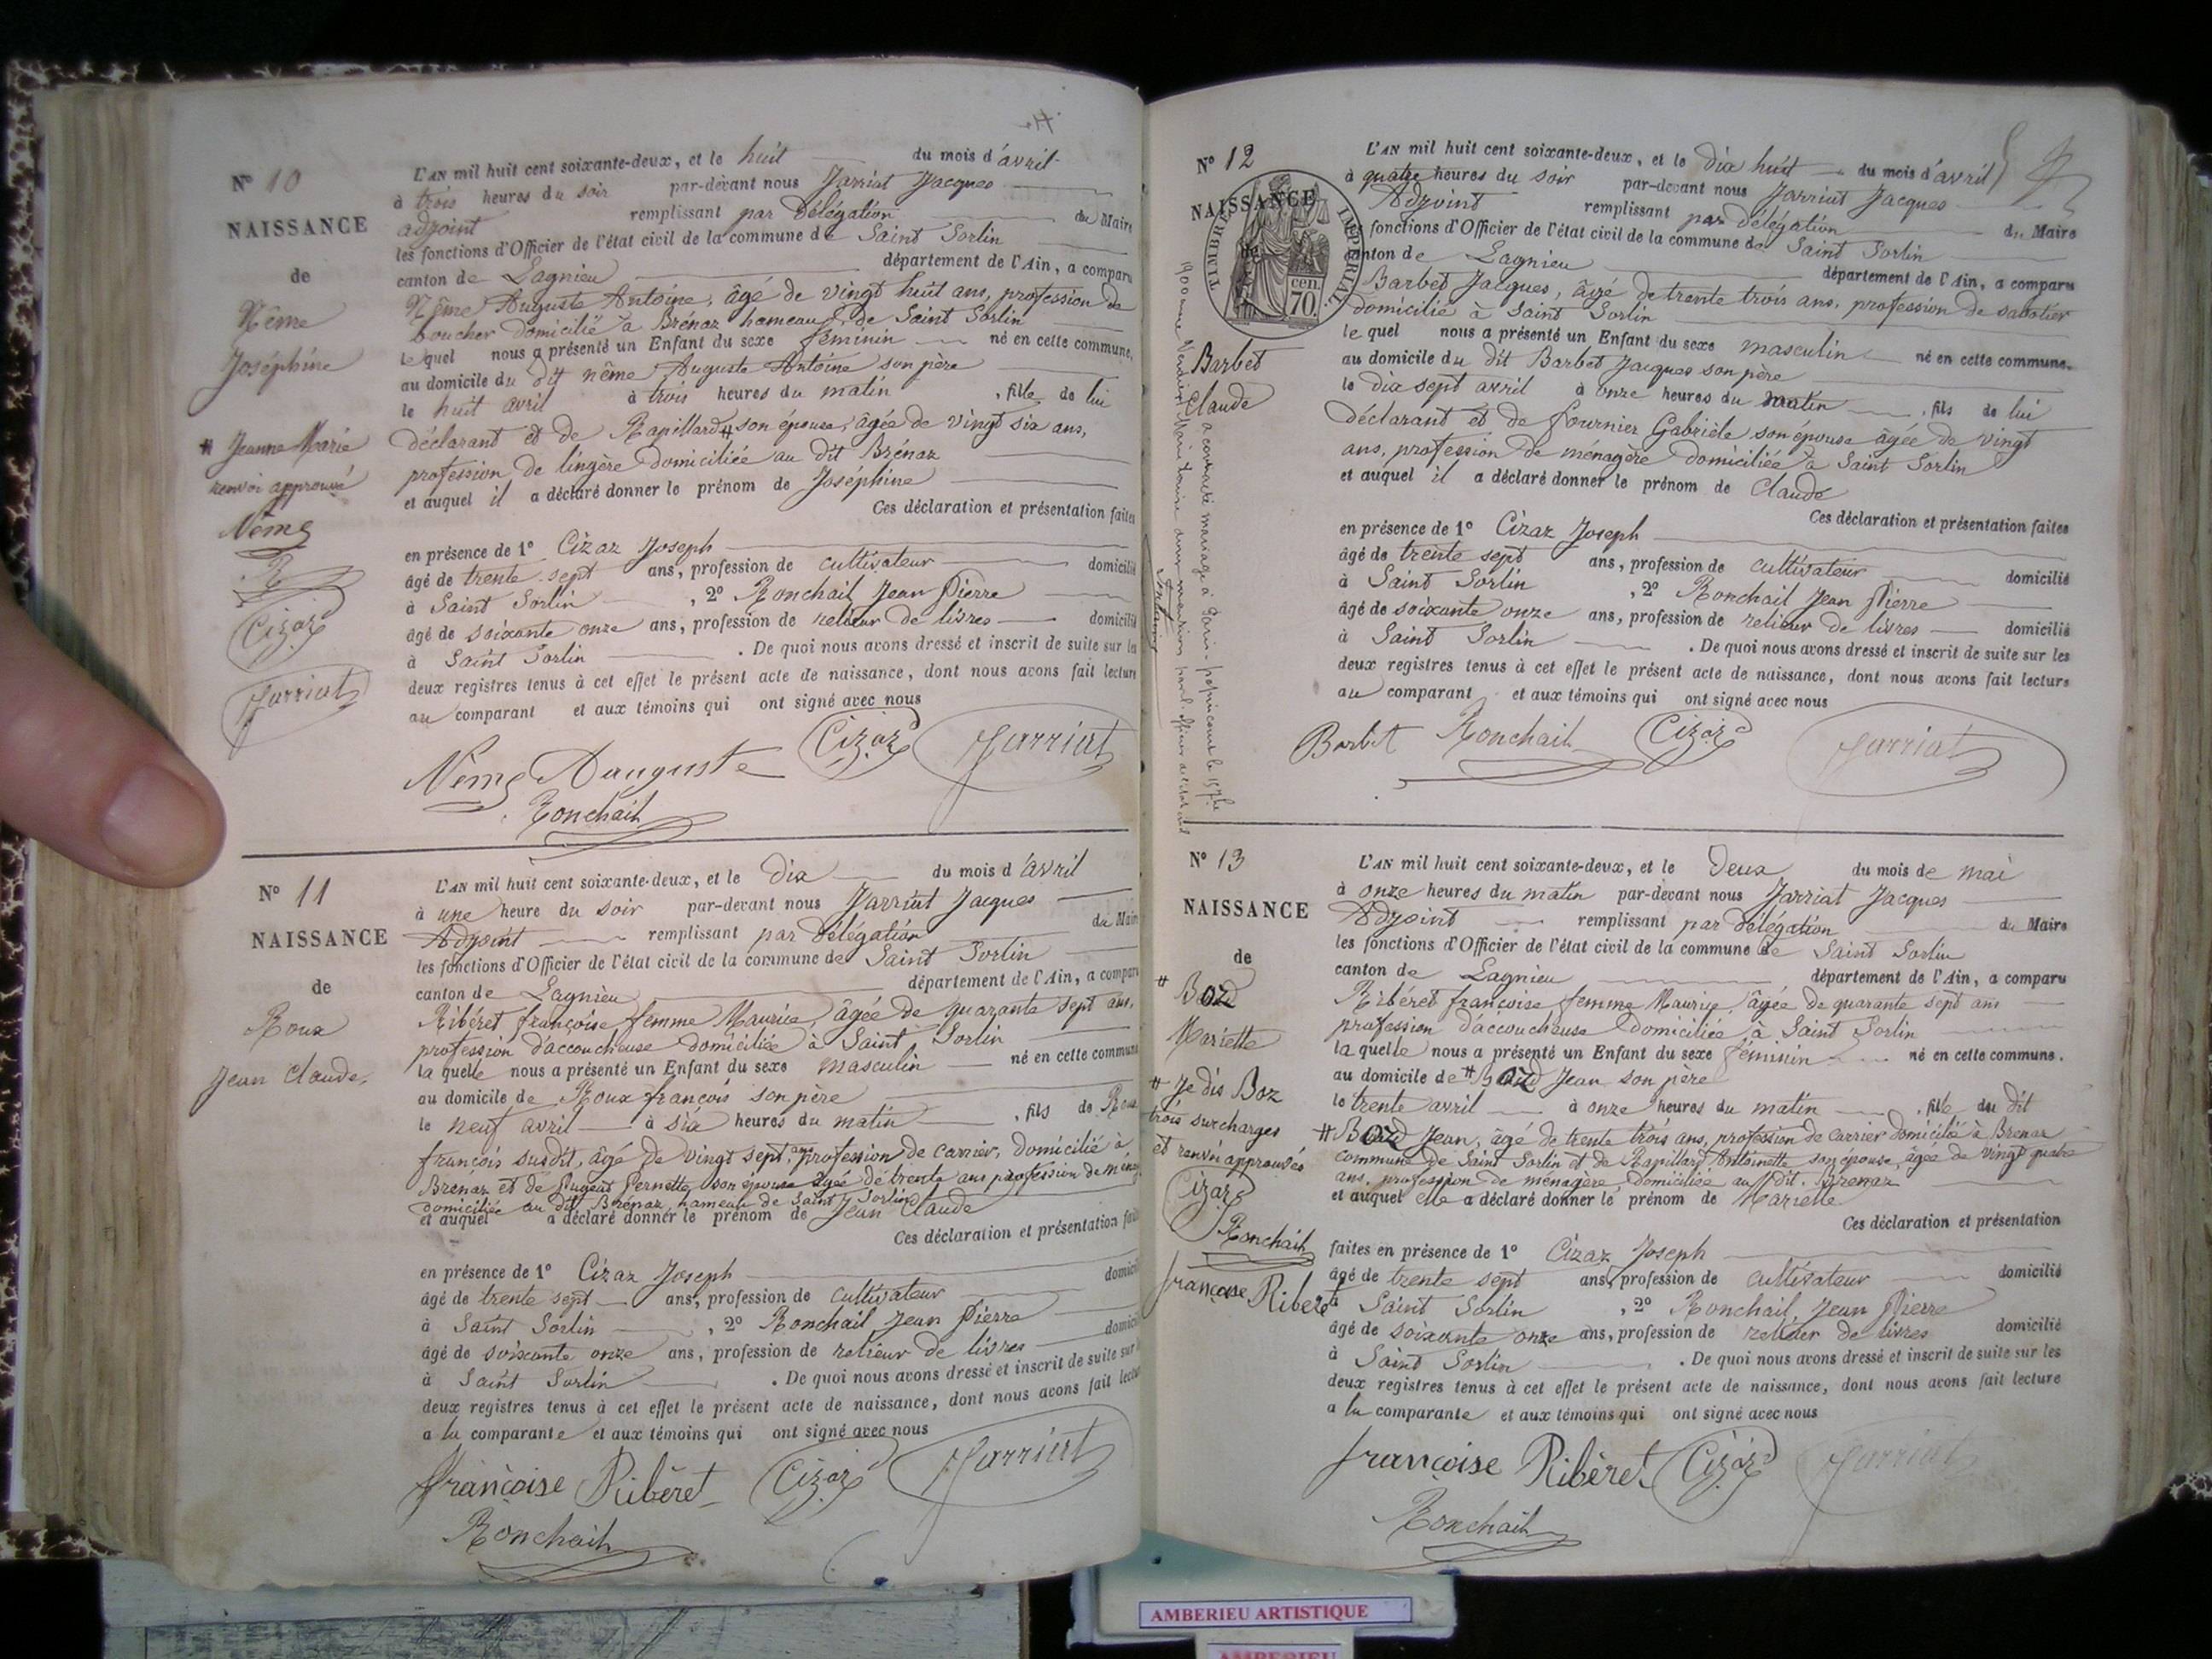 N° 10
NAISSANCE
de
Nême
Joséphine
# Jeanne Marie
renvoi approuvé
Nême
R
Cizaz
Jarriat
L'AN mil huit cent soixante-deux, et le huit du mois d'avril
à trois heures du soir par-devant nous Jarriat Jacques
adjoint remplissant par délégation du Maire
les fonctions d'Officier de l'état civil de la commune de Saint Sorlin
canton de Lagnieu département de l'Ain, a comparu
Nême Auguste Antoine, âgé de vingt huit ans, profession de
boucher domicilié à Brénaz hameau de Saint Sorlin
lequel nous a présenté un Enfant du sexe féminin né en cette commune,
au domicile du dit nême Auguste Antoine son père
le huit avril à trois heures du matin, fille de lui
déclarant et de Rapillard # son épouse, âgée de vingt six ans,
profession de lingère domiciliée au dit Brénaz
et auquel il a déclaré donner le prénom de Joséphine
Ces déclaration et présentation faites
en présence de 1° Cizaz Joseph
âgé de trente sept ans, profession de cultivateur domicilié
à Saint Sorlin, 2° Ronchail Jean Pierre
âgé de soixante onze ans, profession de relieur de livres domicilié
à Saint Sorlin. De quoi nous avons dressé et inscrit de suite sur les
deux registres tenus à cet effet le présent acte de naissance, dont nous avons fait lecture
au comparant et aux témoins qui ont signé avec nous
Nême Auguste Cizaz Jarriat
Ronchail
N° 11
NAISSANCE
de
Roux
Jean Claude
L'AN mil huit cent soixante-deux, et le dix du mois d'avril
à une heure du soir par-devant nous Jarriat Jacques
Adjoint remplissant par délégation du Maire
les fonctions d'Officier de l'état civil de la commune de Saint Sorlin
canton de Lagnieu département de l'Ain, a comparu
Ribéret françoise femme Maurice, âgée de quarante sept ans,
profession d'accoucheuse domiciliée à Saint Sorlin
laquelle nous a présenté un Enfant du sexe masculin né en cette commune
au domicile de Roux françois son père
le neuf avril à six heures du matin, fils de Roux
françois susdit, âgé de vingt sept ans profession de carrier, domicilié à
Brénaz et de Pernette son épouse âgée de trente ans profession de
domiciliée au dit Brénaz, hameau de Saint Sorlin
et auquel a déclaré donner le prénom de Jean Claude
Ces déclaration et présentation
en présence de 1° Cizaz Joseph
âgé de trente sept ans, profession de cultivateur
à Saint Sorlin, 2° Ronchail Jean Pierre
âgé de soixante onze ans, profession de relieur de livres
à Saint Sorlin. De quoi nous avons dressé et inscrit de suite sur
deux registres tenus à cet effet le présent acte de naissance, dont nous avons fait lecture
a la comparante et aux témoins qui ont signé avec nous
françoise Ribèret Cizaz Jarriat
Ronchail
N° 12
NAISSANCE
de
TIMBRE IMPÉRIAL
70 cen.
Barbet
Claude
a contracté mariage à Paris
L'AN mil huit cent soixante-deux, et le dix huit du mois d'avril
à quatre heures du soir par-devant nous Jarriat Jacques
Adjoint remplissant par délégation du Maire
les fonctions d'Officier de l'état civil de la commune de Saint Sorlin
canton de Lagnieu département de l'Ain, a comparu
Barbet Jacques, âgé de trente trois ans, profession de sabotier
domicilié à Saint Sorlin
le quel nous a présenté un Enfant du sexe masculin né en cette commune.
au domicile du dit Barbet Jacques son père
le dix sept avril à onze heures du matin, fils de lui
déclarant et de fournier Gabriele son épouse âgée de vingt
ans, profession de ménagère domiciliée à Saint Sorlin
et auquel il a déclaré donner le prénom de Claude
Ces déclaration et présentation faites
en présence de 1° Cizaz Joseph
âgé de trente sept ans, profession de cultivateur domicilié
à Saint Sorlin, 2° Ronchail Jean Pierre
âgé de soixante onze ans, profession de relieur de livres domicilié
à Saint Sorlin. De quoi nous avons dressé et inscrit de suite sur les
deux registres tenus à cet effet le présent acte de naissance, dont nous avons fait lecture
au comparant et aux témoins qui ont signé avec nous
Barbet Ronchail Cizaz Jarriat
N° 13
NAISSANCE
de
# Boz
Mariette
# Je dis Boz
trois surcharges
et renvoi approuvés
Cizaz
Ronchail
françoise Ribèret
L'AN mil huit cent soixante-deux, et le deux du mois de mai
à onze heures du matin par-devant nous Jarriat Jacques
Adjoint remplissant par délégation du Maire
les fonctions d'Officier de l'état civil de la commune de Saint Sorlin
canton de Lagnieu département de l'Ain, a comparu
Ribéret françoise femme Maurice, âgée de quarante sept ans
profession d'accoucheuse domiciliée à Saint Sorlin
la quelle nous a présenté un Enfant du sexe féminin né en cette commune.
au domicile de # Boz Jean son père
le trente avril à onze heures du matin, fille du dit
# Boz Jean, âgé de trente trois ans, profession de carrier domicilié à Brenaz
commune de Saint Sorlin et de Rapillard Antoinette son épouse, âgée de vingt quatre
ans, profession de ménagère, domiciliée au dit Brenaz
et auquel elle a déclaré donner le prénom de Mariette
Ces déclaration et présentation
faites en présence de 1° Cizaz Joseph
âgé de trente sept ans, profession de cultivateur domicilié
à Saint Sorlin, 2° Ronchail Jean Pierre
âgé de soixante onze ans, profession de relieur de livres domicilié
à Saint Sorlin. De quoi nous avons dressé et inscrit de suite sur les
deux registres tenus à cet effet le présent acte de naissance, dont nous avons fait lecture
a la comparante et aux témoins qui ont signé avec nous
françoise Ribèret Cizaz Jarriat
Ronchail
AMBERIEU ARTISTIQUE
AMBERIEU